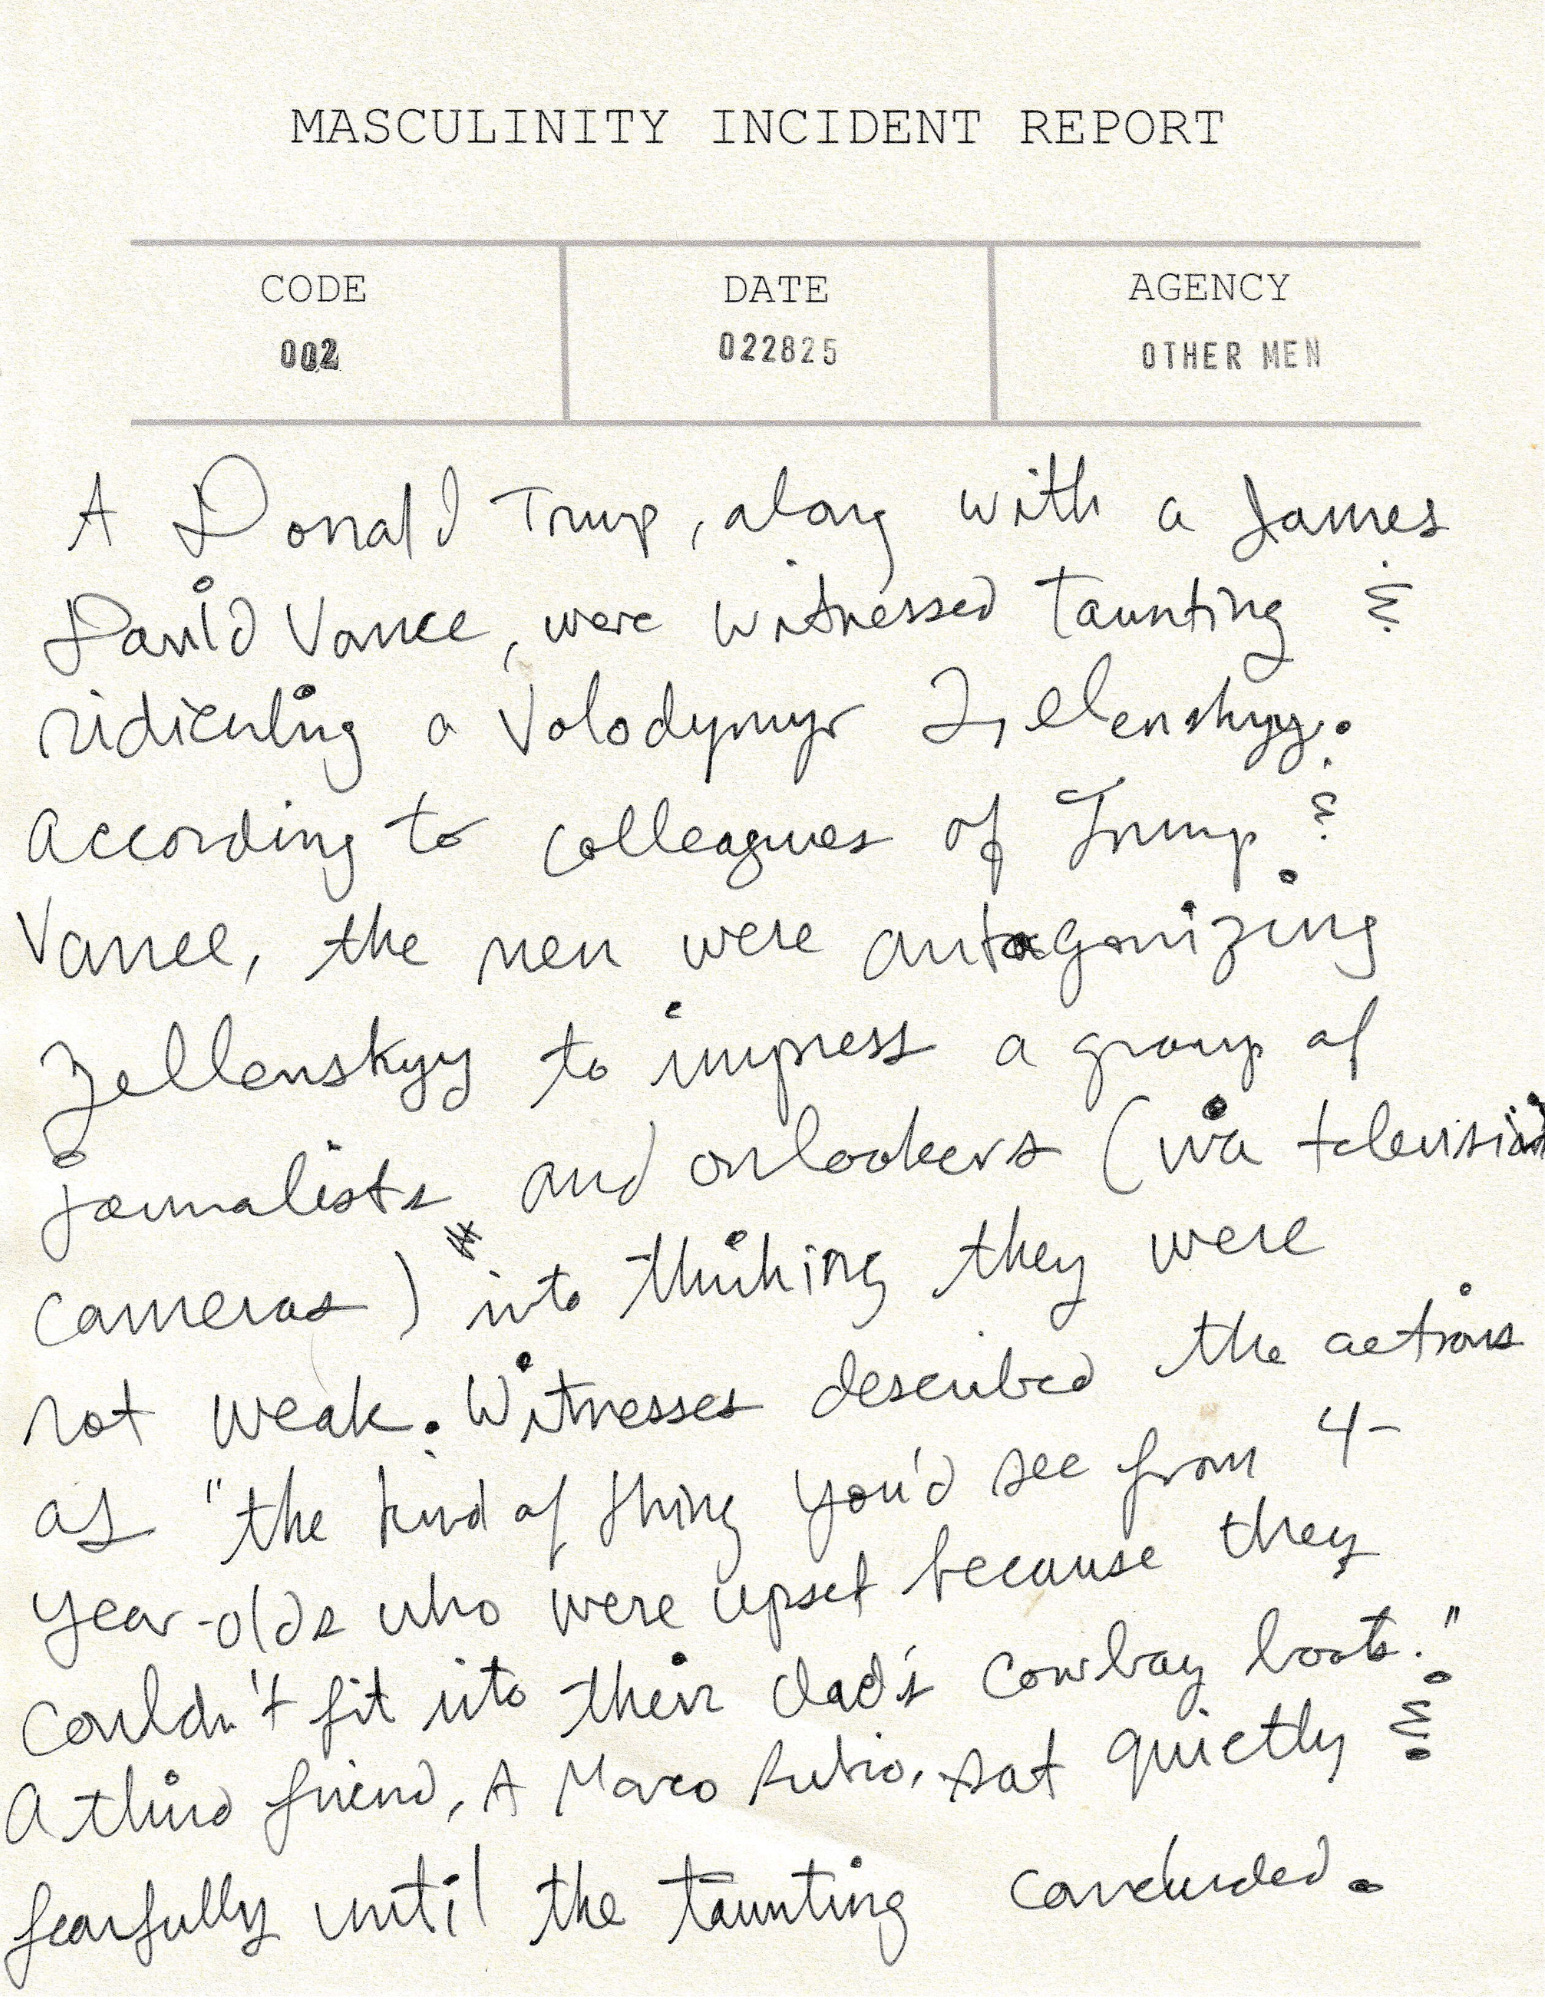 MASCULINITY INCIDENT REPORT
CODE DATE AGENCY
002 022825 OTHER MEN
A Donald Trump, along with a James
David Vance, were witnessed taunting &
ridiculing a Volodymyr Zelenskyy.
According to colleagues of Trump &
Vance, the men were antagonizing
Zellenskyy to impress a group of
journalists and onlookers (via television
cameras) into thinking they were
not weak. Witnesses described the actions
as "the kind of thing you'd see from 4-
year-olds who were upset because they
couldn't fit into their dad's cowboy boots."
A third friend, A Marco Rubio, sat quietly &
fearfully until the taunting concluded.